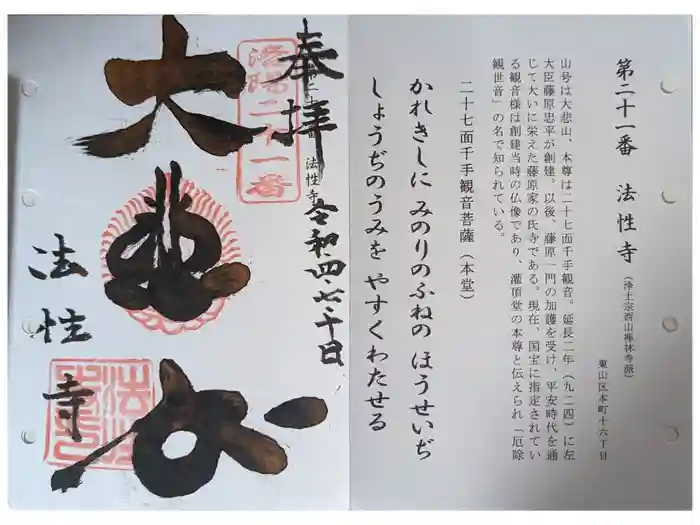 第二十一番 法性寺 (浄土宗西山禅林寺派)
東山区本町十六丁目
山号は大悲山、本尊は二十七面千手観音。延長二年(九二四)に左
大臣藤原忠平が創建。以後、藤原一門の加護を受け、平安時代を通
じて大いに栄えた藤原家の氏寺である。現在、国宝に指定されてい
る観音様は創建当時の仏像であり、灌頂堂の本尊と伝えられ「厄除
観世音」の名で知られている。
二十七面千手観音菩薩(本堂)
かれきしに みのりのふねの ほうせいぢ
しょうぢのうみを やすくわたせる
奉拝
第二十一番 法性寺
洛陽二十一番
令和四・七・十日
大悲
法性寺